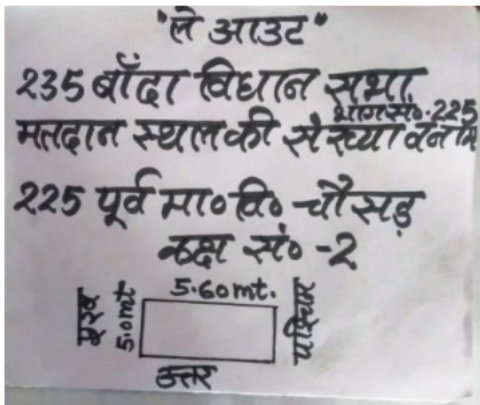 "ले आउट"
235 बाँदा विधान सभा
भाग सं०.225
मतदान स्थल की संख्या व नाम
225 पूर्व मा० वि० चौसड़
कक्ष सं० -2
5.60mt.
पूरब
5.0mt
पश्चिम
उत्तर